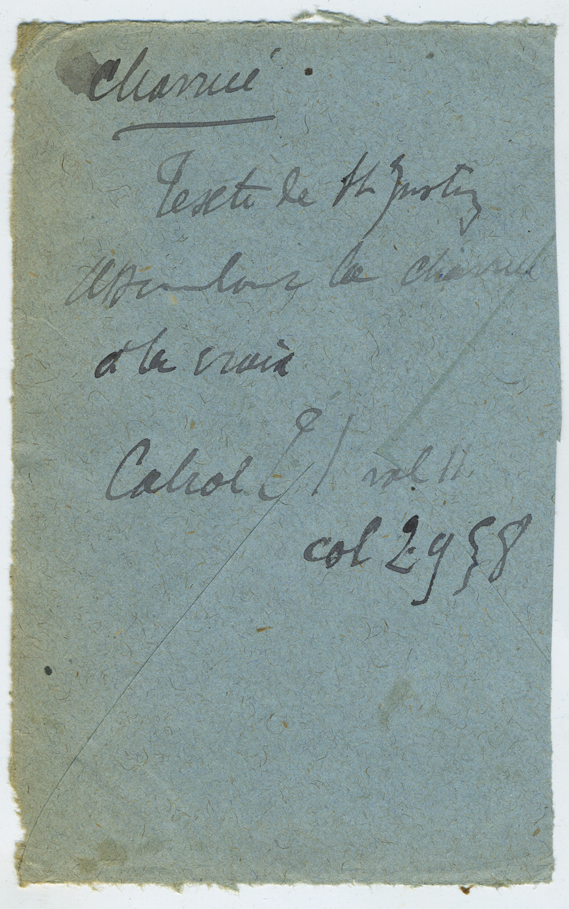 Charrue
Texte de St Justin
la charrue
à la croix
Cabrol vol II
col 2958